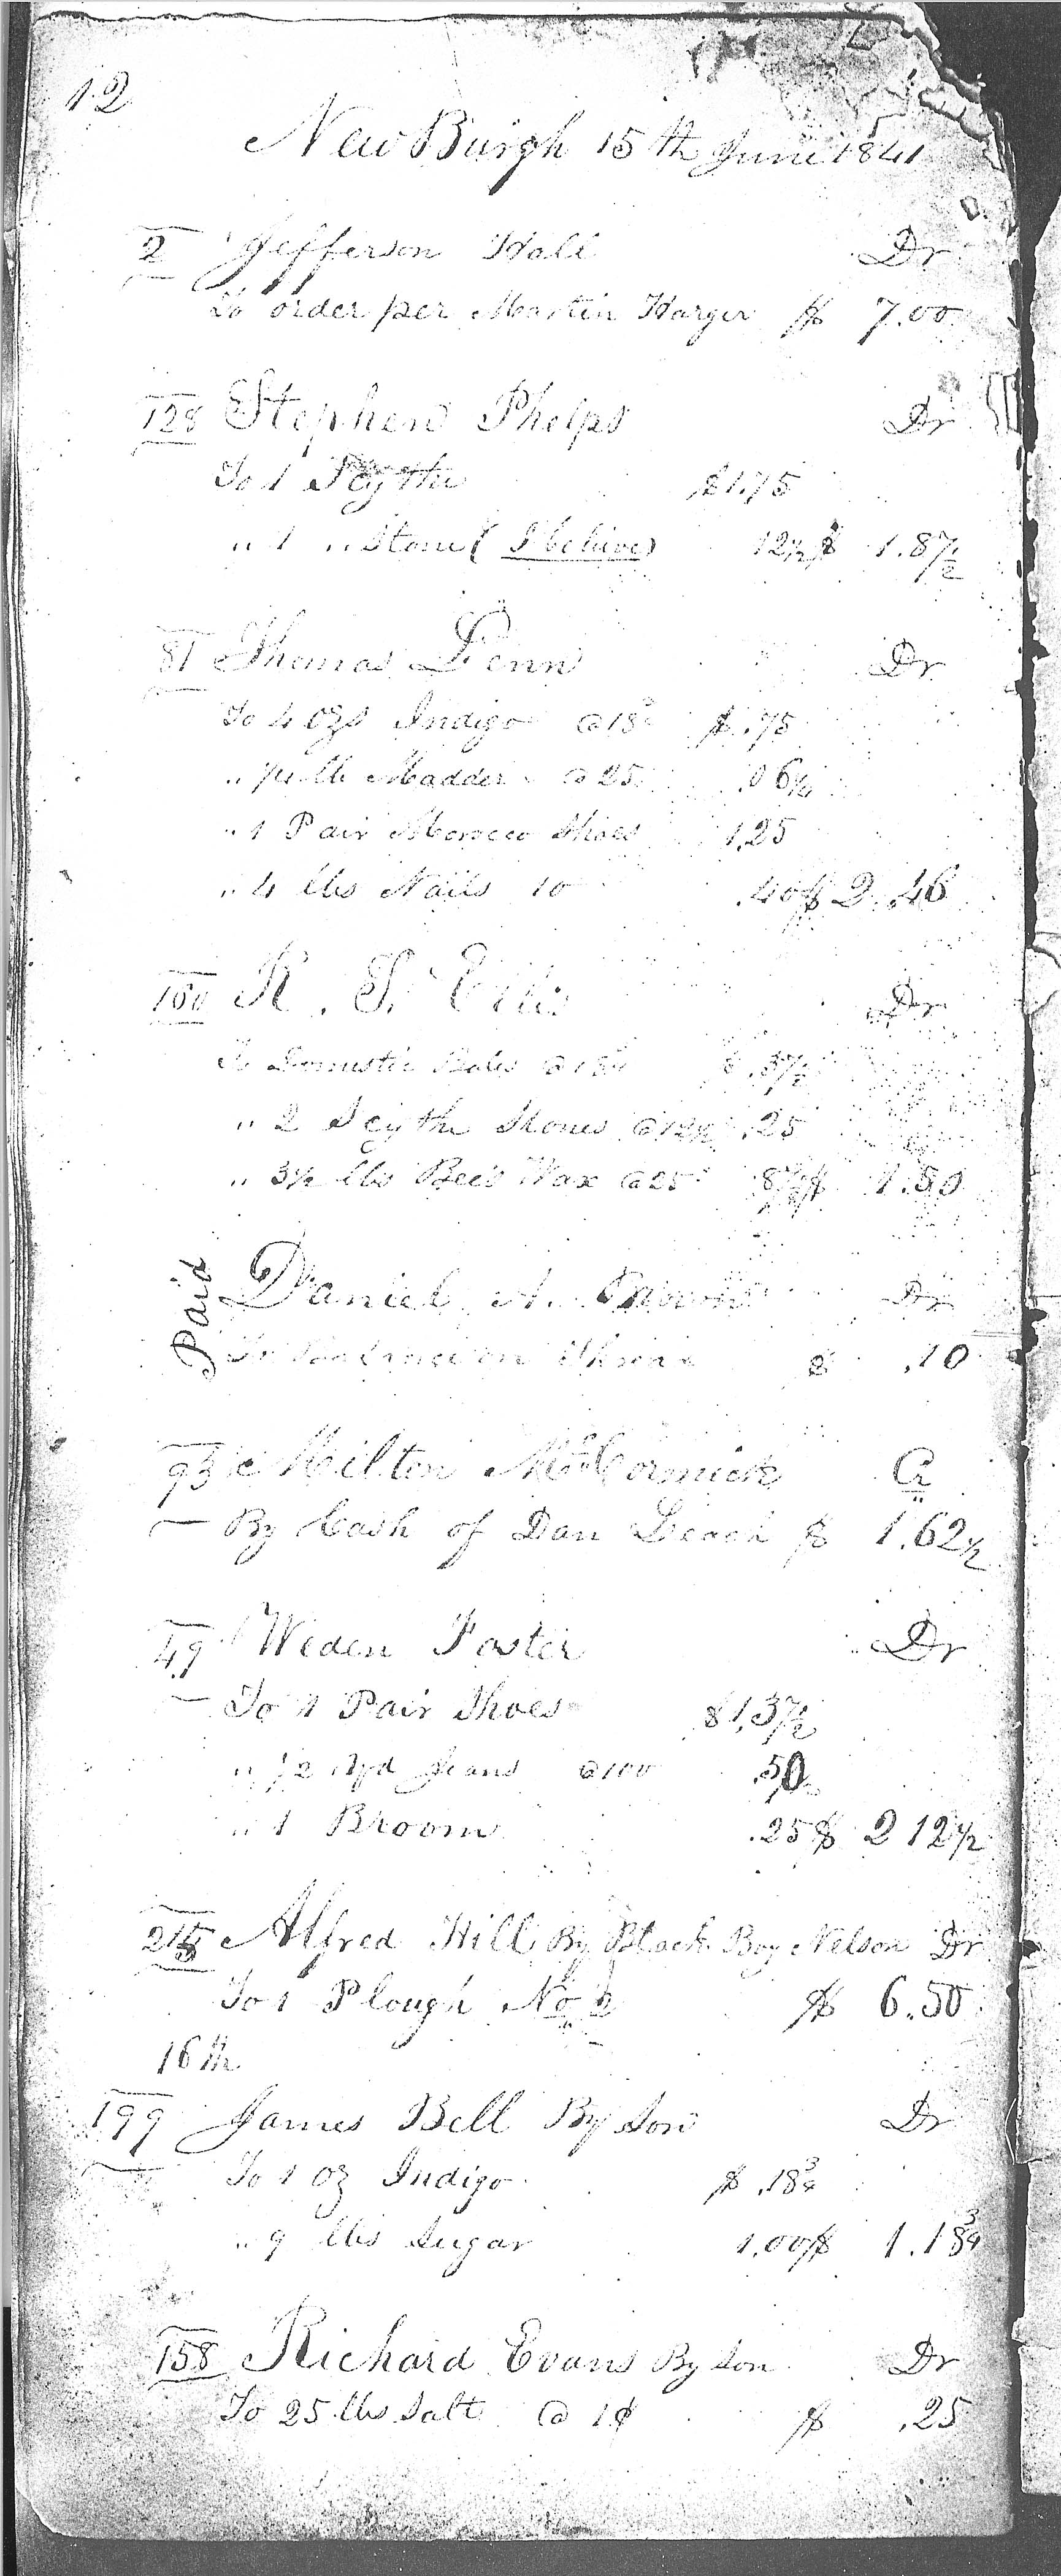 12
New Burgh 15th June 1841
2 Jefferson Hall Dr
To order per Martin Harger $ 7.00
128 Stephen Phelps Dr
To 1 Scythe $1.75
" 1 " Stone ( ) 12½ $ 1.87½
81 Thomas Penn Dr
To 4 ozs Indigo @ 18¾ $ .75
" ¼ lb Madder @ 25 .06¼
" 1 Pair Morocco Shoes 1.25
" 4 lbs Nails 10 .40 $ 2.46
160 R. S. Dr
To Domestic @ $ .37½
" 2 Scythe Stones @ 12½ .25
" 3½ lbs Bees Wax @ 25 87½ $ 1.50
Paid Daniel A. Brown Dr
To $ .10
93 Milton McCormick Cr
By Cash of Dan Leach $ 1.62½
49 Weden Foster Dr
To 1 Pair Shoes $1.37½
" ½ yd Jeans @ 100 .50
" 1 Broom .25 $ 2 12½
215 Alfred Hill By Black Boy Nelson Dr
To 1 Plough No 2 $ 6.50
16th
199 James Bell By Son Dr
To 1 oz Indigo $ .18¾
" 9 lbs Sugar 1.00 $ 1.18¾
158 Richard Evans By Son Dr
To 25 lbs Salt @ 1¢ $ .25